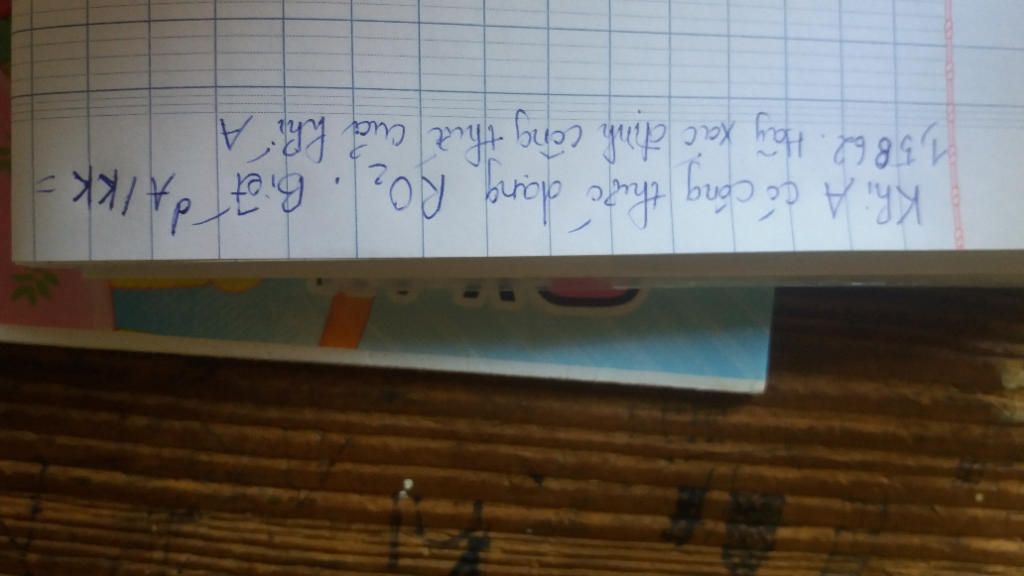 Khí A có công thức dạng RO₂. Biết dA/KK =
1,5862. Hãy xác định công thức của khí A